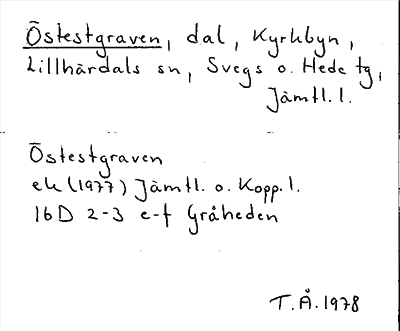 Östestgraven, dal, Kyrkbyn,
Lillhärdals sn, Svegs o. Hede tg,
Jämtl. l.
Östestgraven
ek (1977) Jämtl. o. Kopp. l.
16D 2-3 e-f Gråheden
T.Å. 1978